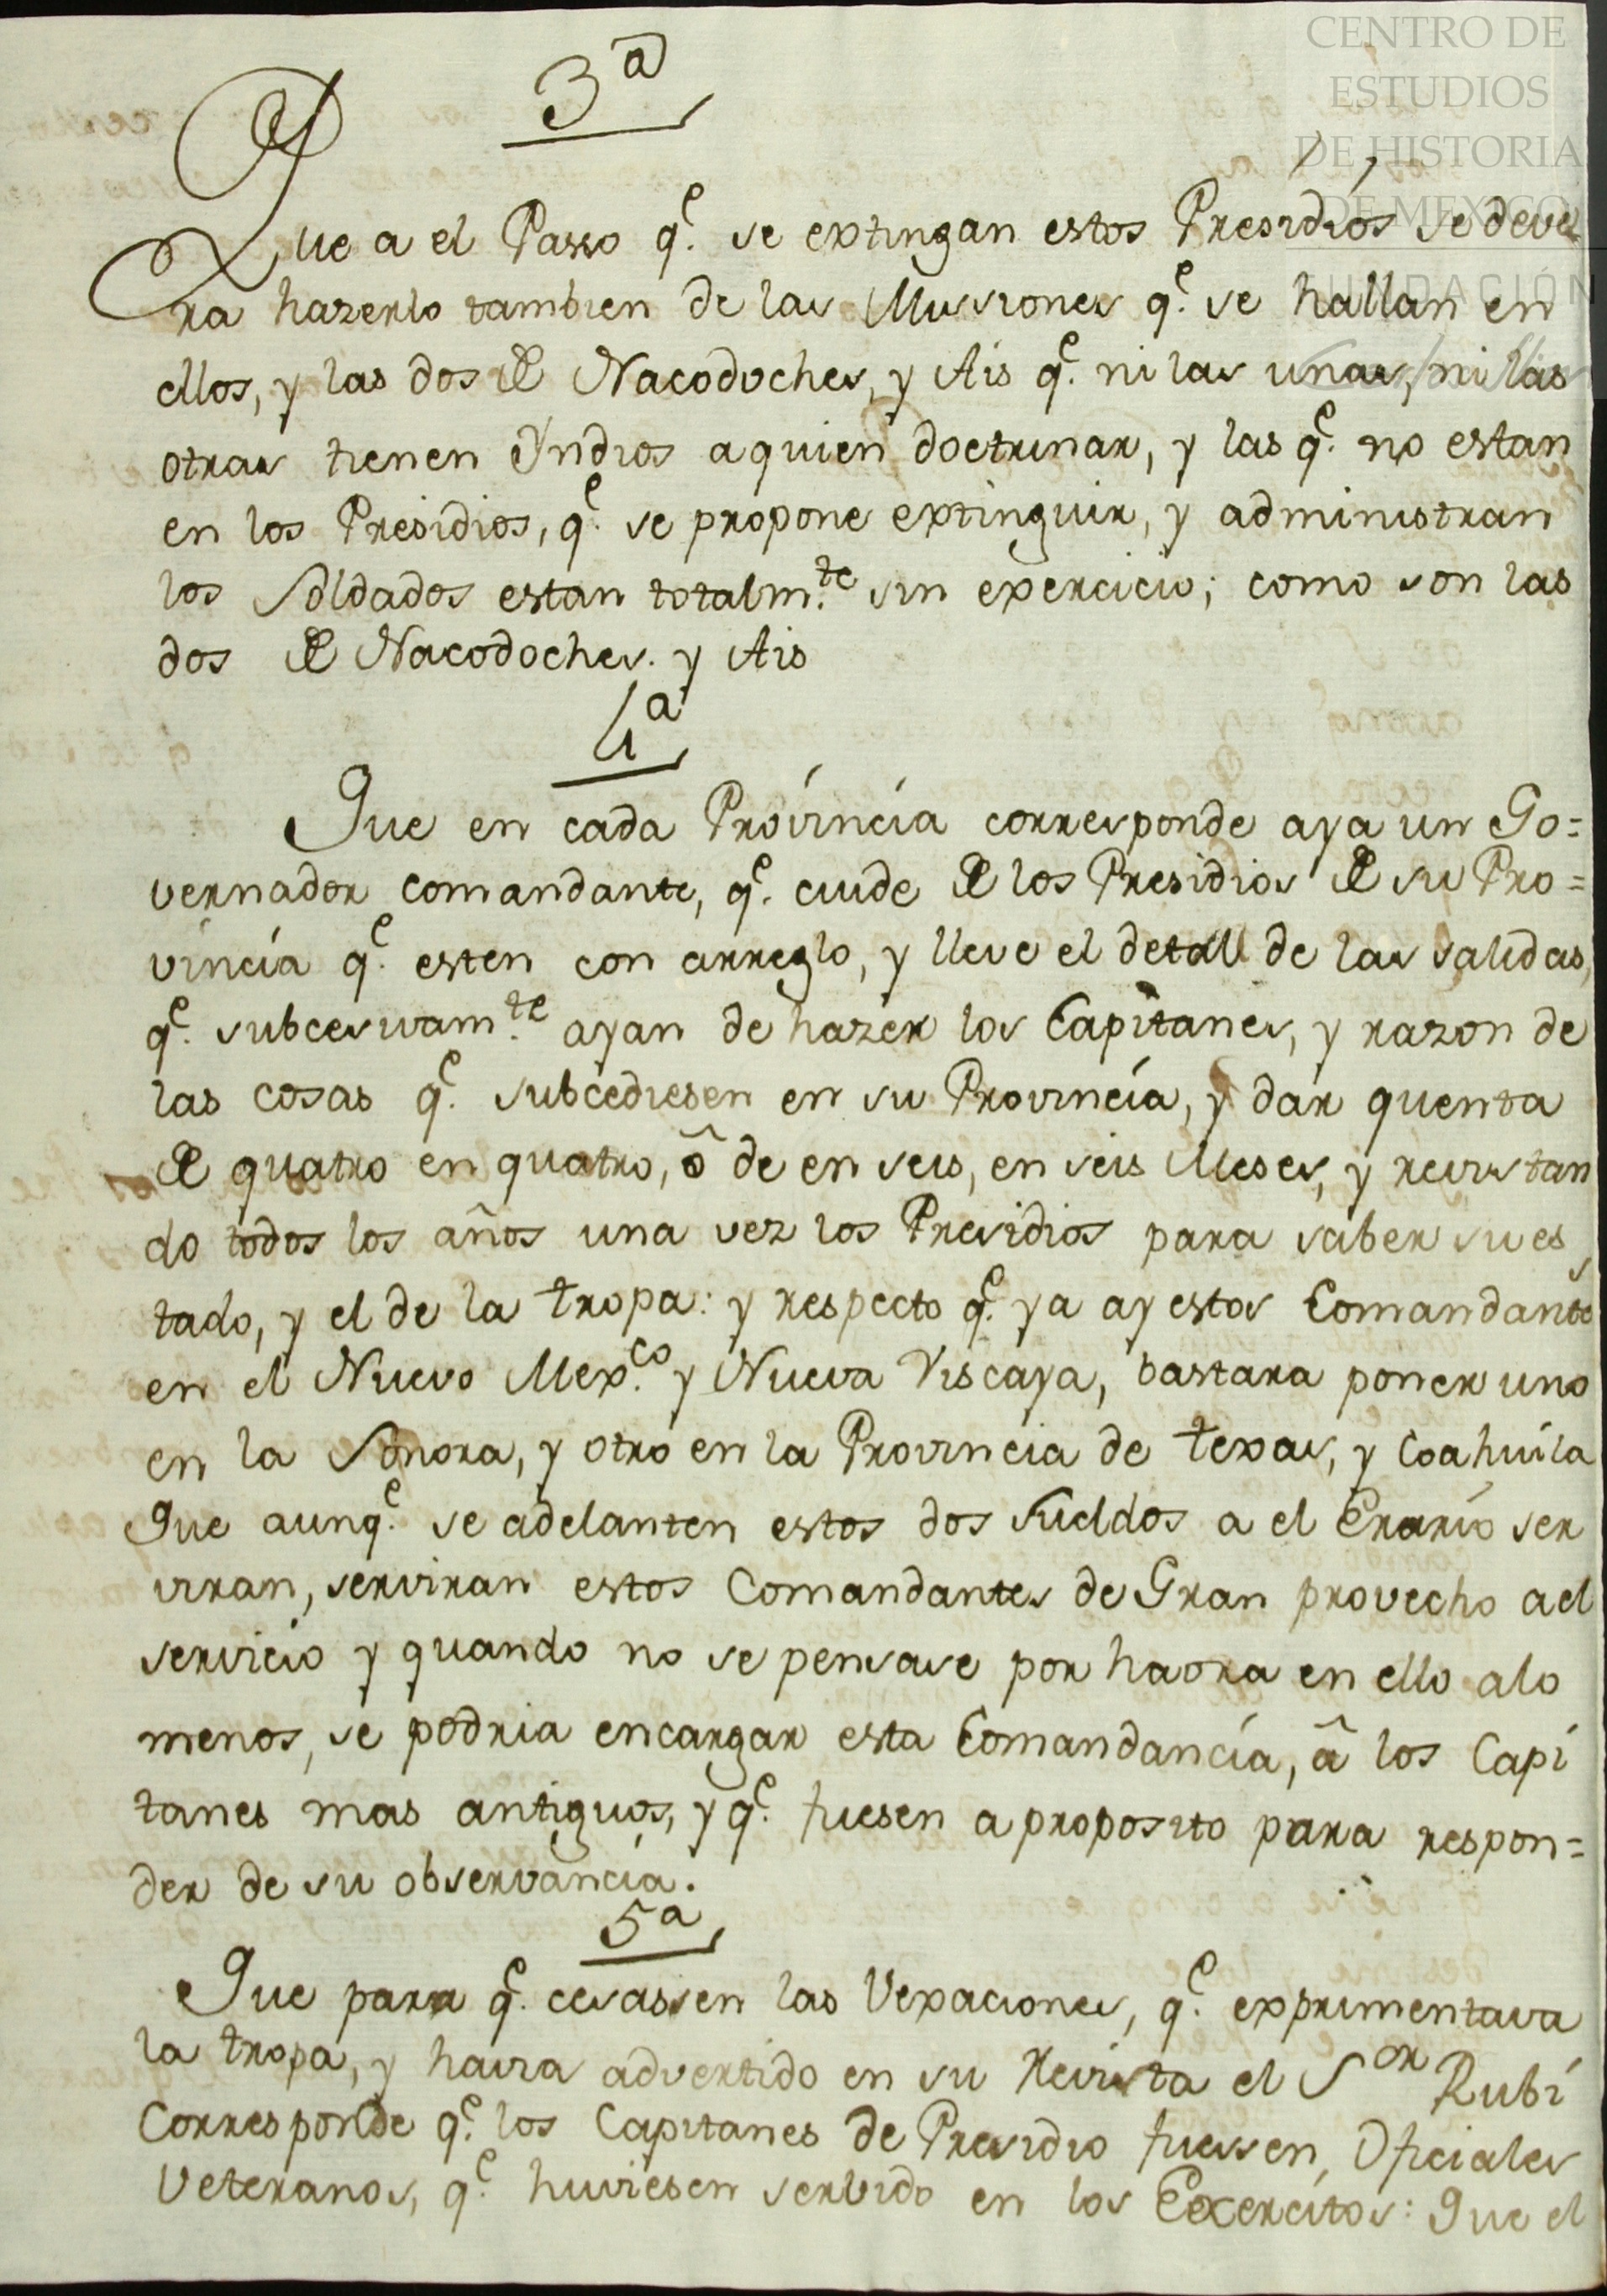 CENTRO DE
ESTUDIOS
DE HISTORIA
DE MEXICO
FUNDACIÓN
3ª
Que a el Passo q.ᵉ se extingan estos Presidios se deve
ra hazerlo tambien de las Missiones q.ᵉ se hallan en
ellos, y las dos de Nacodoches, y Ais q.ᵉ ni las unas, ni las
otras tienen Yndios a quien doctrinar, y las q.ᵉ no estan
en los Presidios, q.ᵉ se propone extinguir, y administran
los Soldados estan totalm.ᵗᵉ sin exercicio; como son las
dos de Nacodoches. y Ais
4ª
Que en cada Provincia corresponde aya un Go=
vernador comandante, q.ᵉ cuide de los Presidios de su Pro=
vincia q.ᵉ esten con arreglo, y lleve el detall de las salidas,
q.ᵉ subcesivam.ᵗᵉ ayan de hazer los Capitanes, y razon de
las cosas q.ᵉ subcediesen en su Provincia, y dar quenta
de quatro en quatro, ô de en seis, en seis Meses, y revistan
do todos los años una vez los Presidios para saber su es
tado, y el de la tropa: y respecto q.ᵉ ya ay estos Comandante
en el Nuevo Mex.ᶜᵒ y Nueva Viscaya, bastara poner uno
en la Sonora, y otro en la Provincia de texas, y Coahuila
Que aunq.ᵉ se adelanten estos dos sueldos a el Erario ser
viran, serviran estos Comandantes de Gran provecho ael
servicio y quando no se pensase por haora en ello alo
menos, se podria encargar esta Comandancia, â los Capi
tanes mas antiguos, y q.ᵉ fuesen a proposito para respon=
der de su observancia.
5ª
Que para q.ᵉ cesassen las Vexaciones, q.ᵉ exprimentava
la tropa, y havia advertido en su Revista el Sᵒʳ Rubi
Corresponde q.ᵉ los Capitanes de Presidio fuessen, Oficiales
Veteranos, q.ᵉ huviesen servido en los Exercitos: Que el